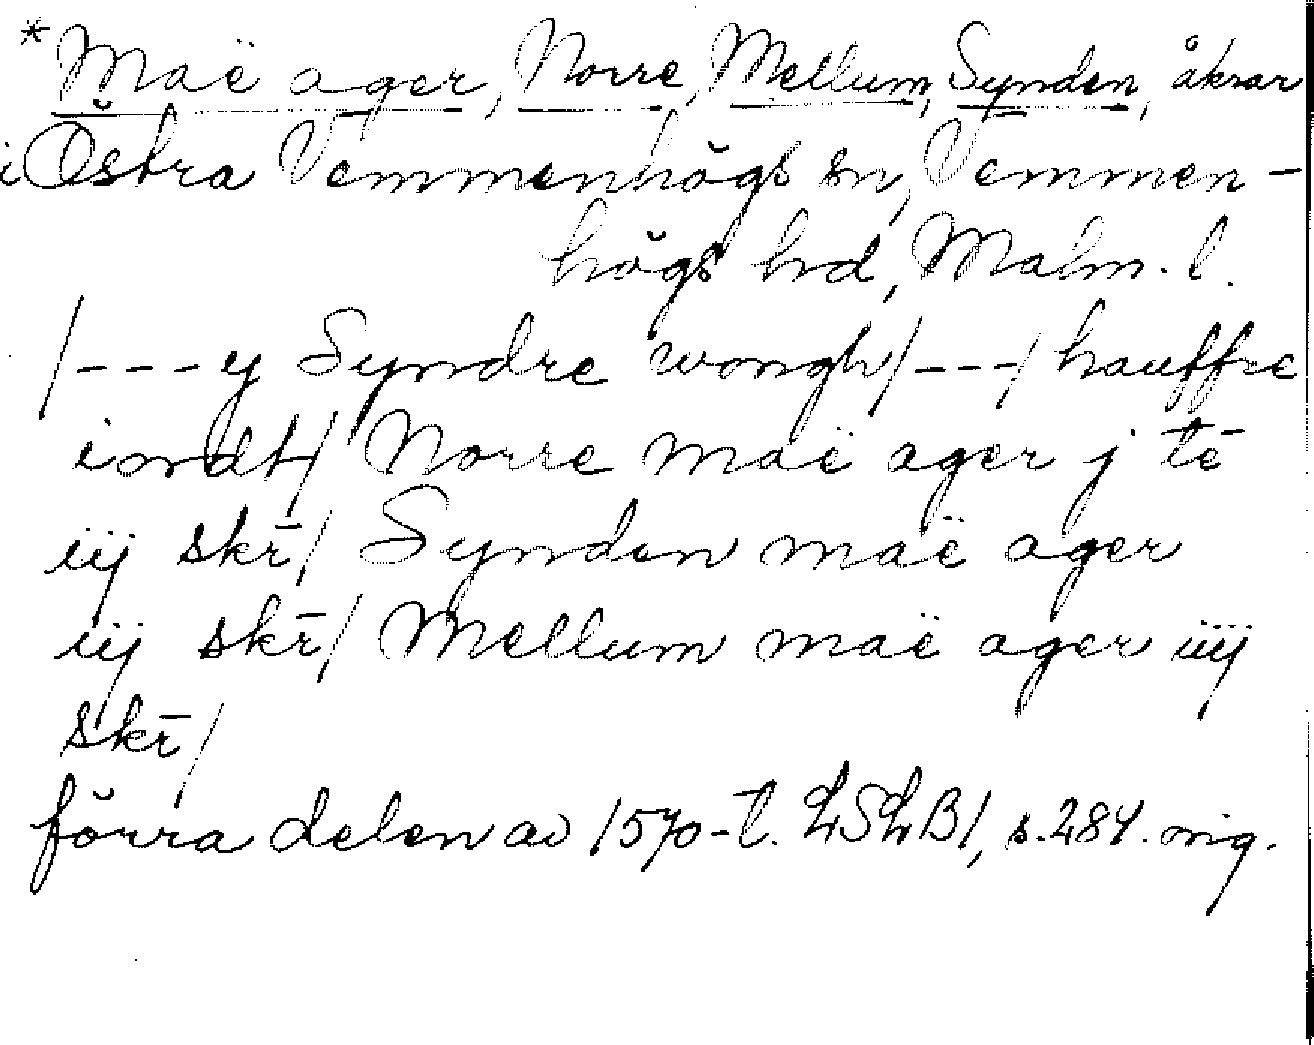 *Maë ager, Norre, Mellum, Synden, åkrar
i Östra Vemmenhögs sn, Vemmen-
högs hd, Malm. l.
/---y Syndre wongh/---/hauffre
iordt/ Norre maë ager j tē
iij skr̄/ Synden maë ager
iij skr̄/ Mellum maë ager iiij
skr̄/
förra delen av 1570-t. LSLB1, s. 284. orig.